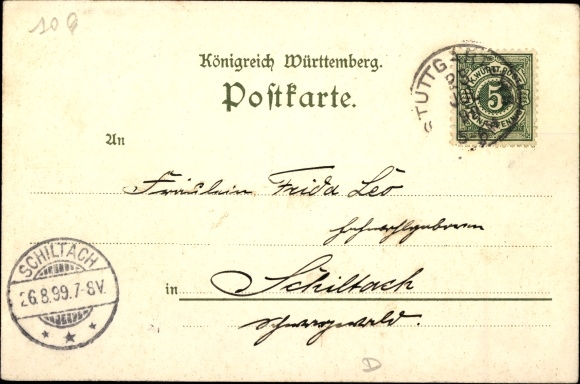 10 8
Königreich Württemberg.
Postkarte.
STUTTG
K. WÜRTT. POST
5
An
Fräulein Frida Leo
Hochwohlgeboren
SCHILTACH
26.8.99.7-8V.
in Schiltach
Schwarzwald.
D